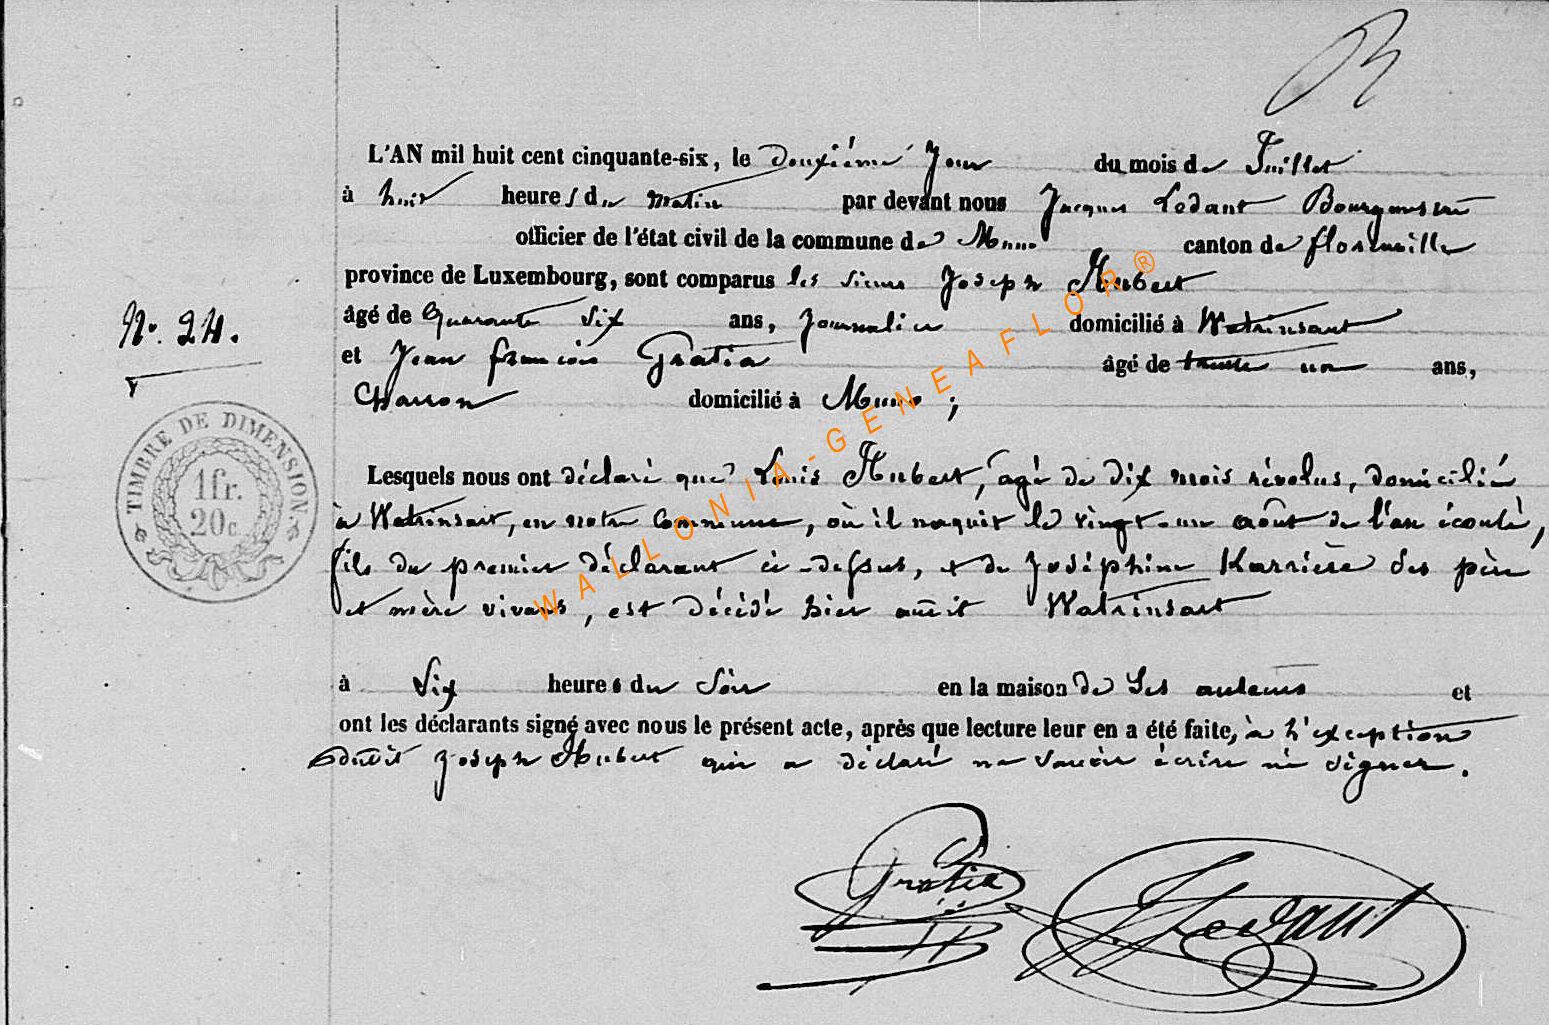 L'AN mil huit cent cinquante-six, le Deuxième Jour du mois de Juillet
à huit heures du matin par devant nous Jacques Ledant Bourgmestre
officier de l'état civil de la commune de Muno canton de florenville
province de Luxembourg, sont comparus les sieurs Joseph Hubert
âgé de Quarante Six ans, Journalier domicilié à Watrinsart
et Jean françois Gratia âgé de trente un ans,
Charron domicilié à Muno ;
N.° 24.
TIMBRE DE DIMENSION.
1fr.
20c.
Lesquels nous ont déclaré que Louis Hubert, agé de dix mois révolus, domicilié
à Watrinsart, en notre Commune, où il naquit le vingt-un août de l'an écoulé,
fils du premier déclarant ci-dessus, et de Joséphine Karrière ses père
et mère vivans, est décédé hier audit Watrinsart
à Six heures du Soir en la maison de Ses auteurs et
ont les déclarants signé avec nous le présent acte, après que lecture leur en a été faite, à l'exception
dudit Joseph Hubert qui a déclaré ne savoir écrire ni signer.
Gratia
J Ledant
WALLONIA-GENEAFLOR®